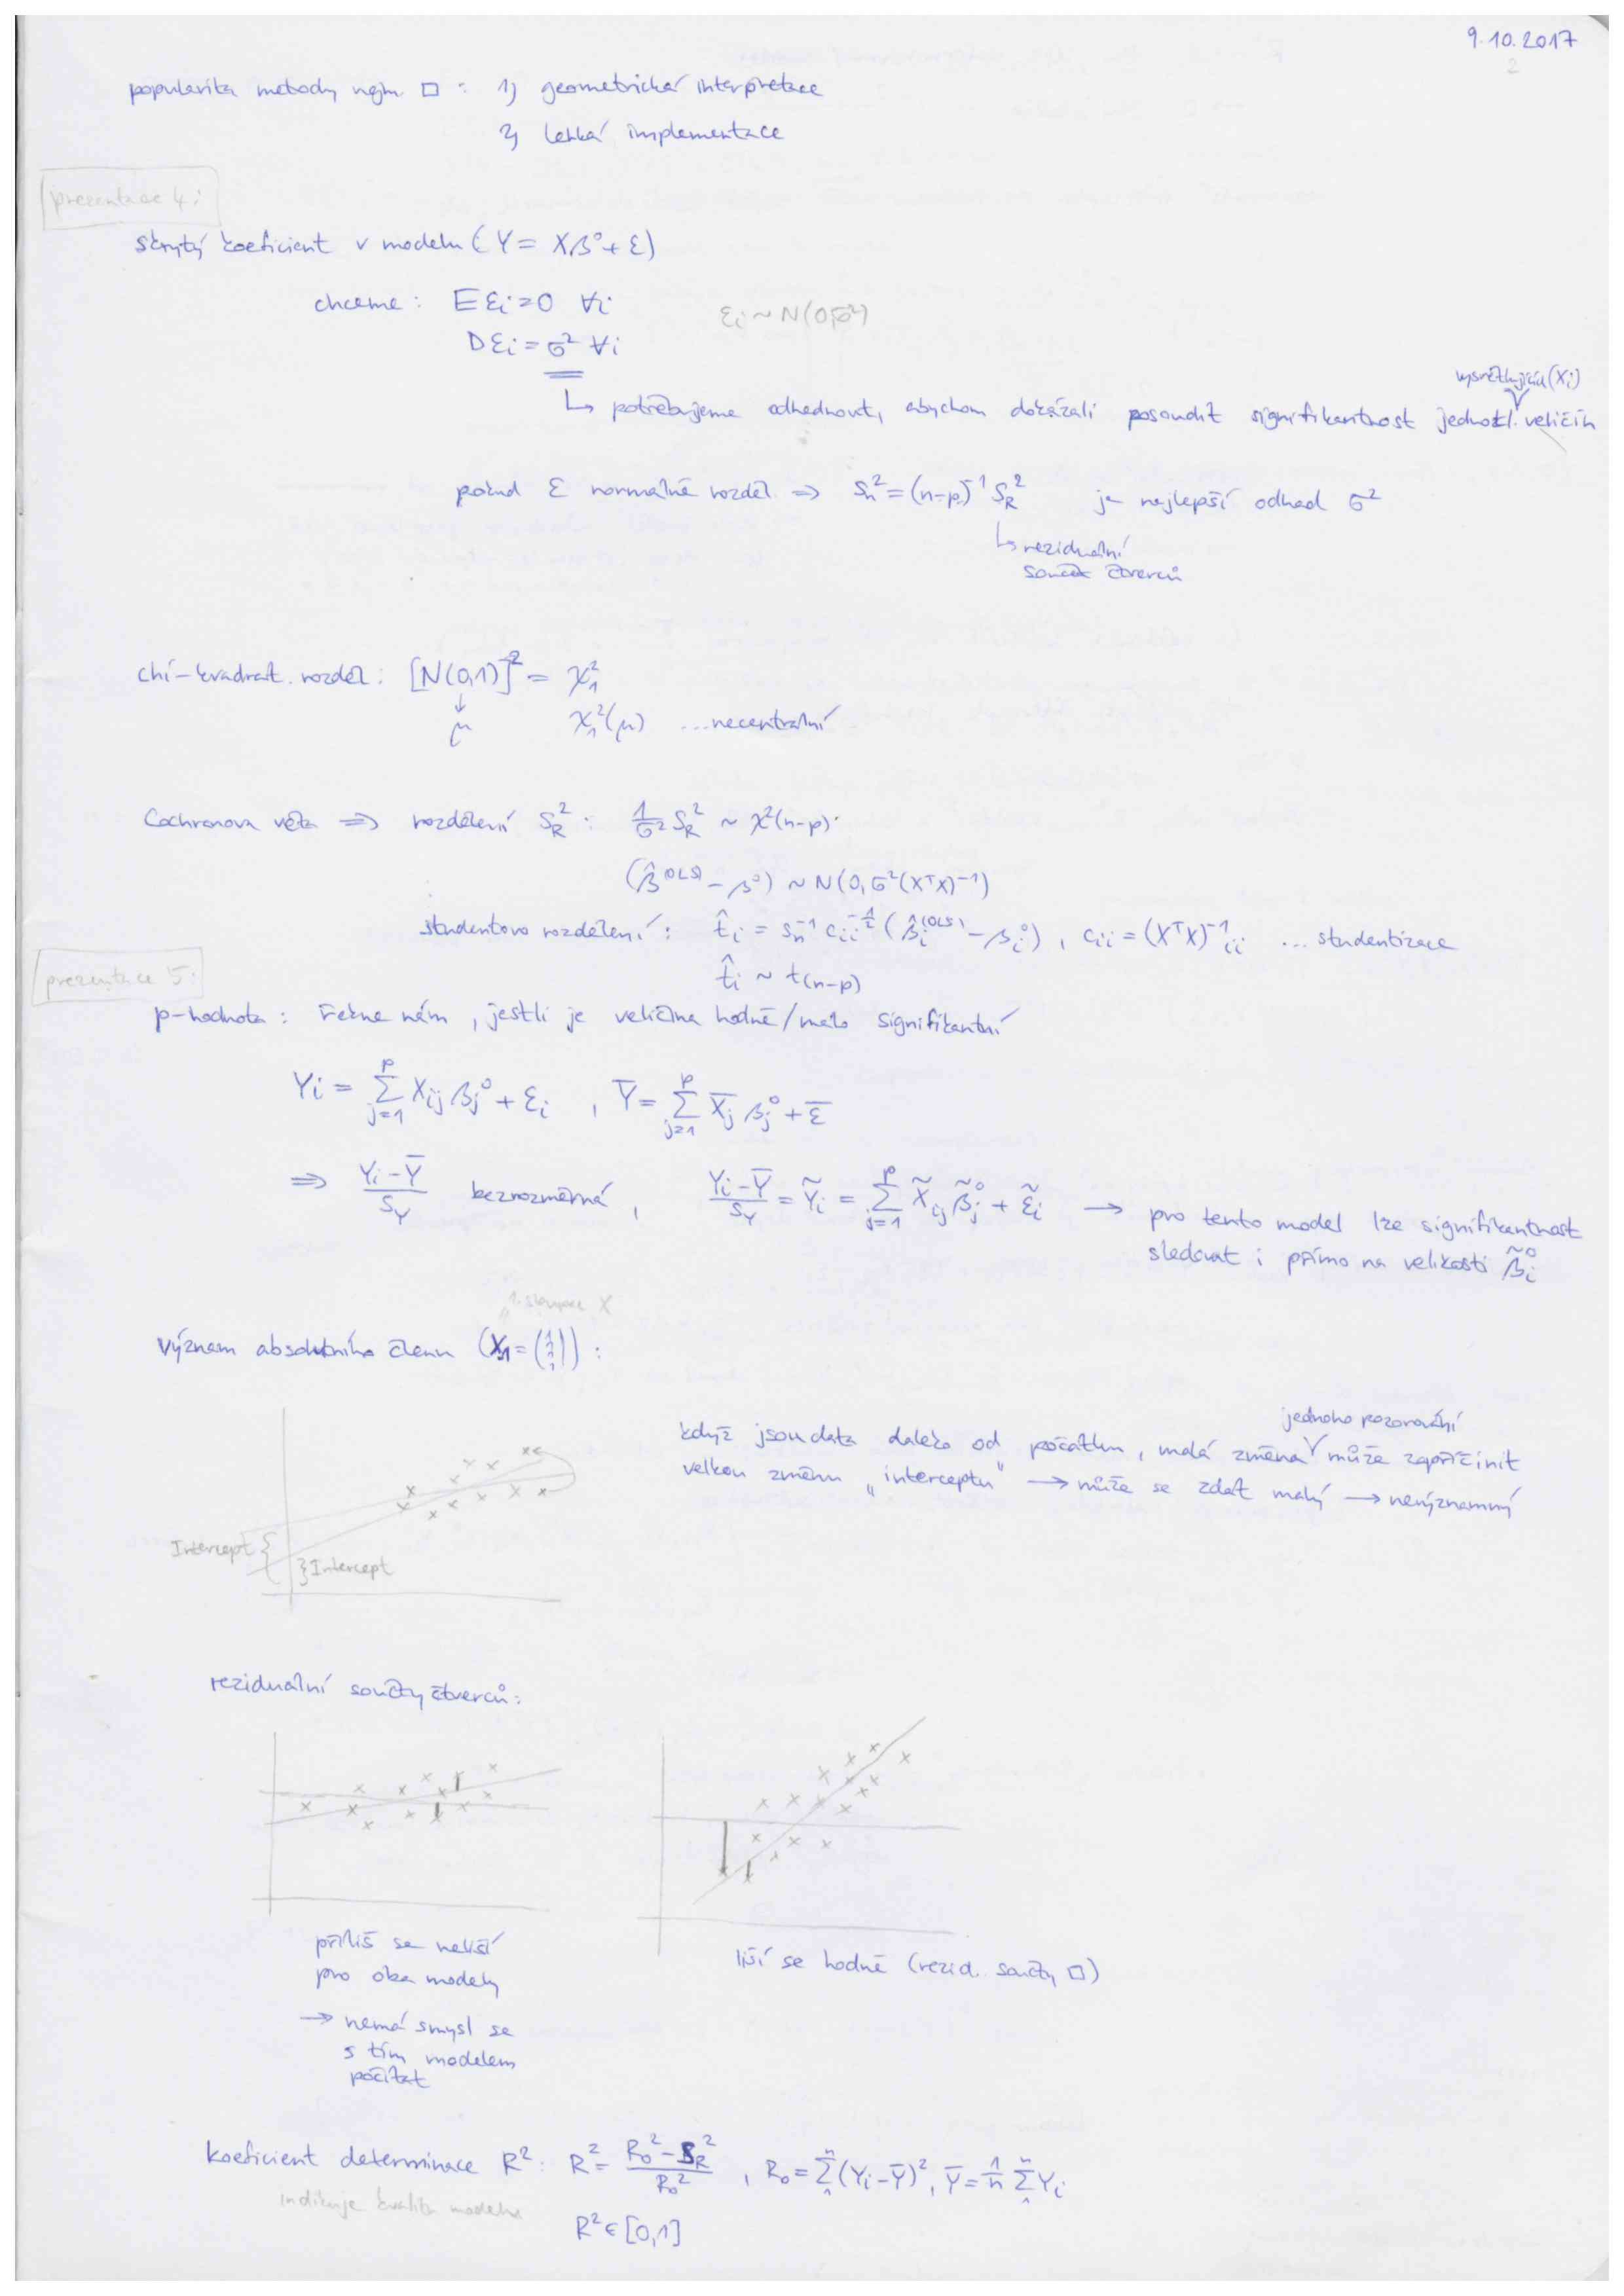 9.10.2017
2
popularita metody nejm. □ : 1) geometrická interpretace
2) lehká implementace
prezentace 4:
skrytý koeficient v modelu (Y = Xβ⁰ + ε)
chceme: E εi = 0 ∀i
εi ~ N(0,σ²)
D εi = σ² ∀i
vysvětlující (Xi)
↳ potřebujeme odhadnout, abychom dokázali posoudit signifikantnost jednotl. veličin
pokud ε normálně rozděl ⇒ Sn² = (n-p)⁻¹ SR² je nejlepší odhad σ²
↳ reziduální
součet čtverců
chí-kvadrát. rozděl: [N(0,1)]² = χ₁²
↓
μ χ₁²(μ) ...necentrální
Cochronova věta ⇒ rozdělení SR² : 1/σ² SR² ~ χ²(n-p)
(β̂^(OLS) - β⁰) ~ N(0, σ²(XᵀX)⁻¹)
studentovo rozdělení: t̂i = sn⁻¹ cii^(-1/2) (β̂i^(OLS) - βi⁰), cii = (XᵀX)⁻¹ii ... studentizace
t̂i ~ t(n-p)
prezentace 5:
p-hodnota: řekne nám, jestli je veličina hodně/málo signifikantní
Yi = Σ_{j=1}^{p} Xij βj⁰ + εi , Ȳ = Σ_{j=1}^{p} X̄j βj⁰ + ε̄
⇒ (Yi - Ȳ)/SY bezrozměrná, (Yi - Ȳ)/SY = Ỹi = Σ_{j=1}^{p} X̃ij β̃j⁰ + ε̃i → pro tento model lze signifikantnost
sledovat i přímo na velikosti β̃i⁰
1. sloupec X
význam absolutního členu (X1 = (1 1 1)) :
jednoho pozorování
když jsou data daleko od počátku, malá změna může zapříčinit
velkou změnu „interceptu" → může se zdát malý → nevýznamný
Intercept {
} Intercept
reziduální součty čtverců:
příliš se neliší
pro oba modely
→ nemá smysl se
s tím modelem
počítat
liší se hodně (rezid. součty □)
koeficient determinace R² : R² = (R₀² - SR²)/R₀² , R₀ = Σ₁ⁿ (Yi - Ȳ)², Ȳ = 1/n Σ₁ⁿ Yi
indikuje kvalitu modelu
R² ∈ [0,1]